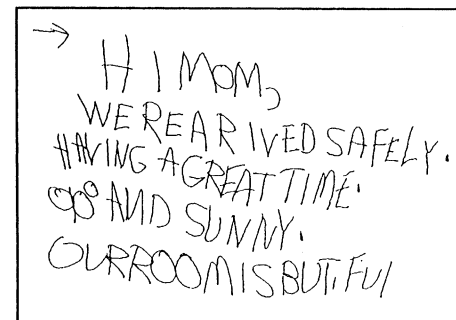 → HI MOM,
WE REARIVED SAFELY.
HAVING A GREAT TIME.
AND SUNNY.
OUR ROOM IS BUTIFUl